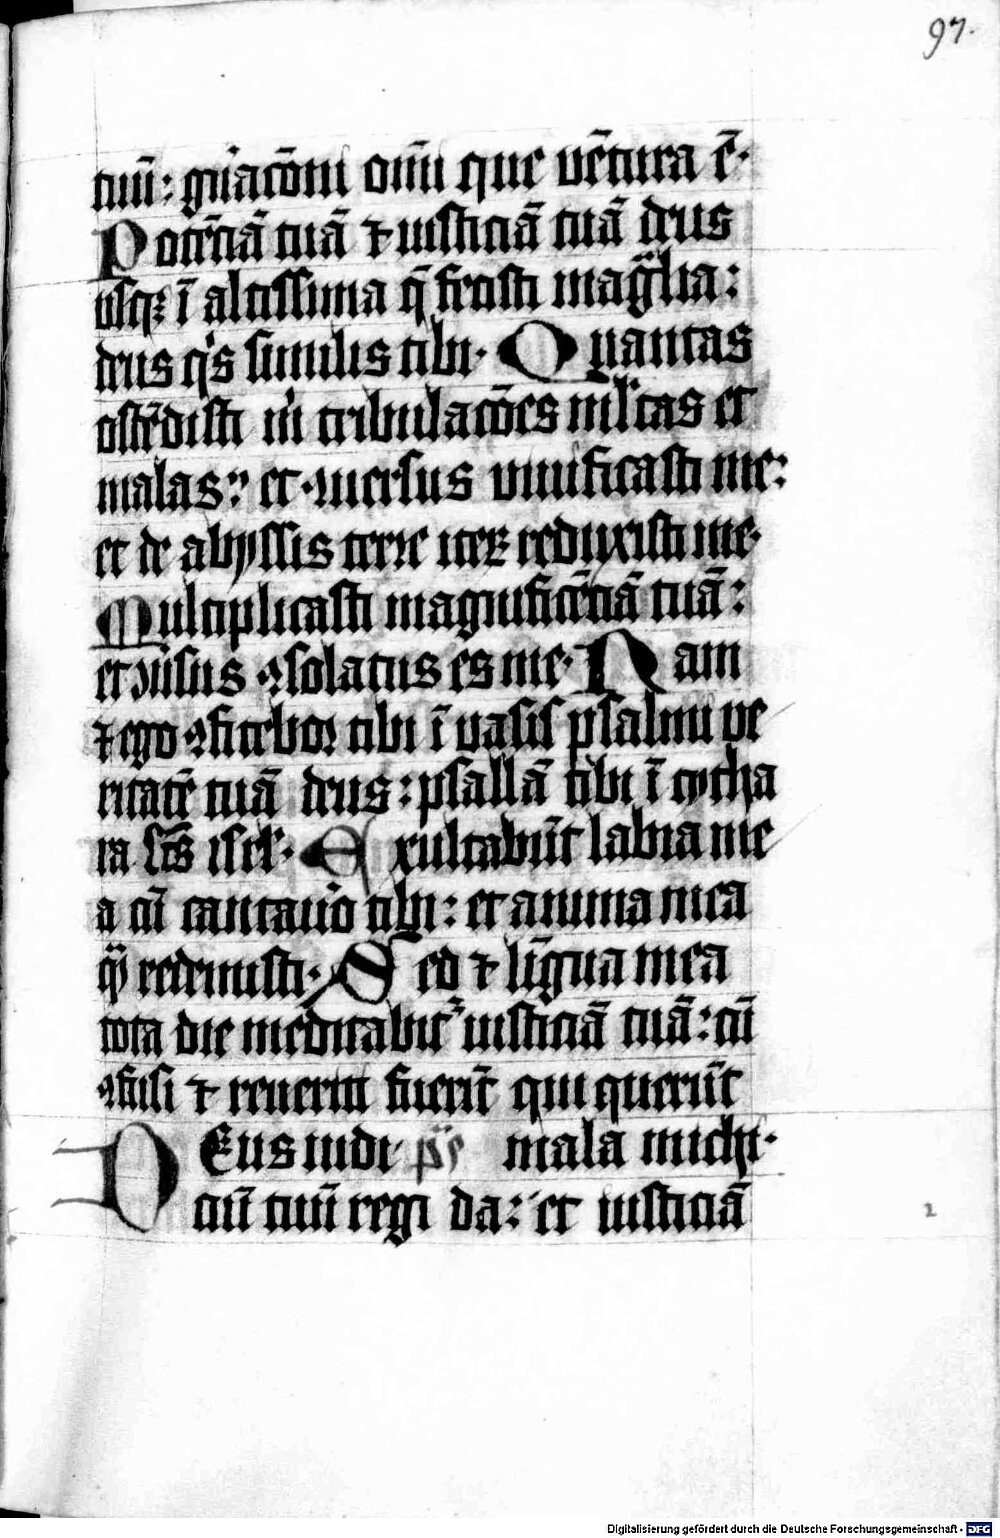 97.
tuū: gn̄acōni om̄i que vētura ē.
Potētiā tuā ⁊ iusticiā tuā deus
usq₃ ī altissima q̄ fecisti mag̃lia:
deus q̇s similis tibi. Quantas
ostēdisti m̄ tribulacōes ml̃tas et
malas: et ꝯuersus viuificasti me:
et de abyssis terre iteꝝ reduxisti me.
Multiplicasti magnificētiā tuā:
et ꝯuersus ꝯsolatus es me. Nam
⁊ ego ꝯfitebor tibi ī vasis psalmi ve
ritatē tuā deus: psallā tibi ī cytha
ra scūs isrl̄. Exultabūt labia me
a cū cantauero tibi: et anima mea
q̄ redemisti. Sed ⁊ lingua mea
tota die meditabit᷑ iusticiā tuā: cū
ꝯfusi ⁊ reueriti fuerīt qui querūt
Deus iudi ps̄ mala michi.
ciū tuū regi da: et iusticiā
Digitalisierung gefördert durch die Deutsche Forschungsgemeinschaft - DFG